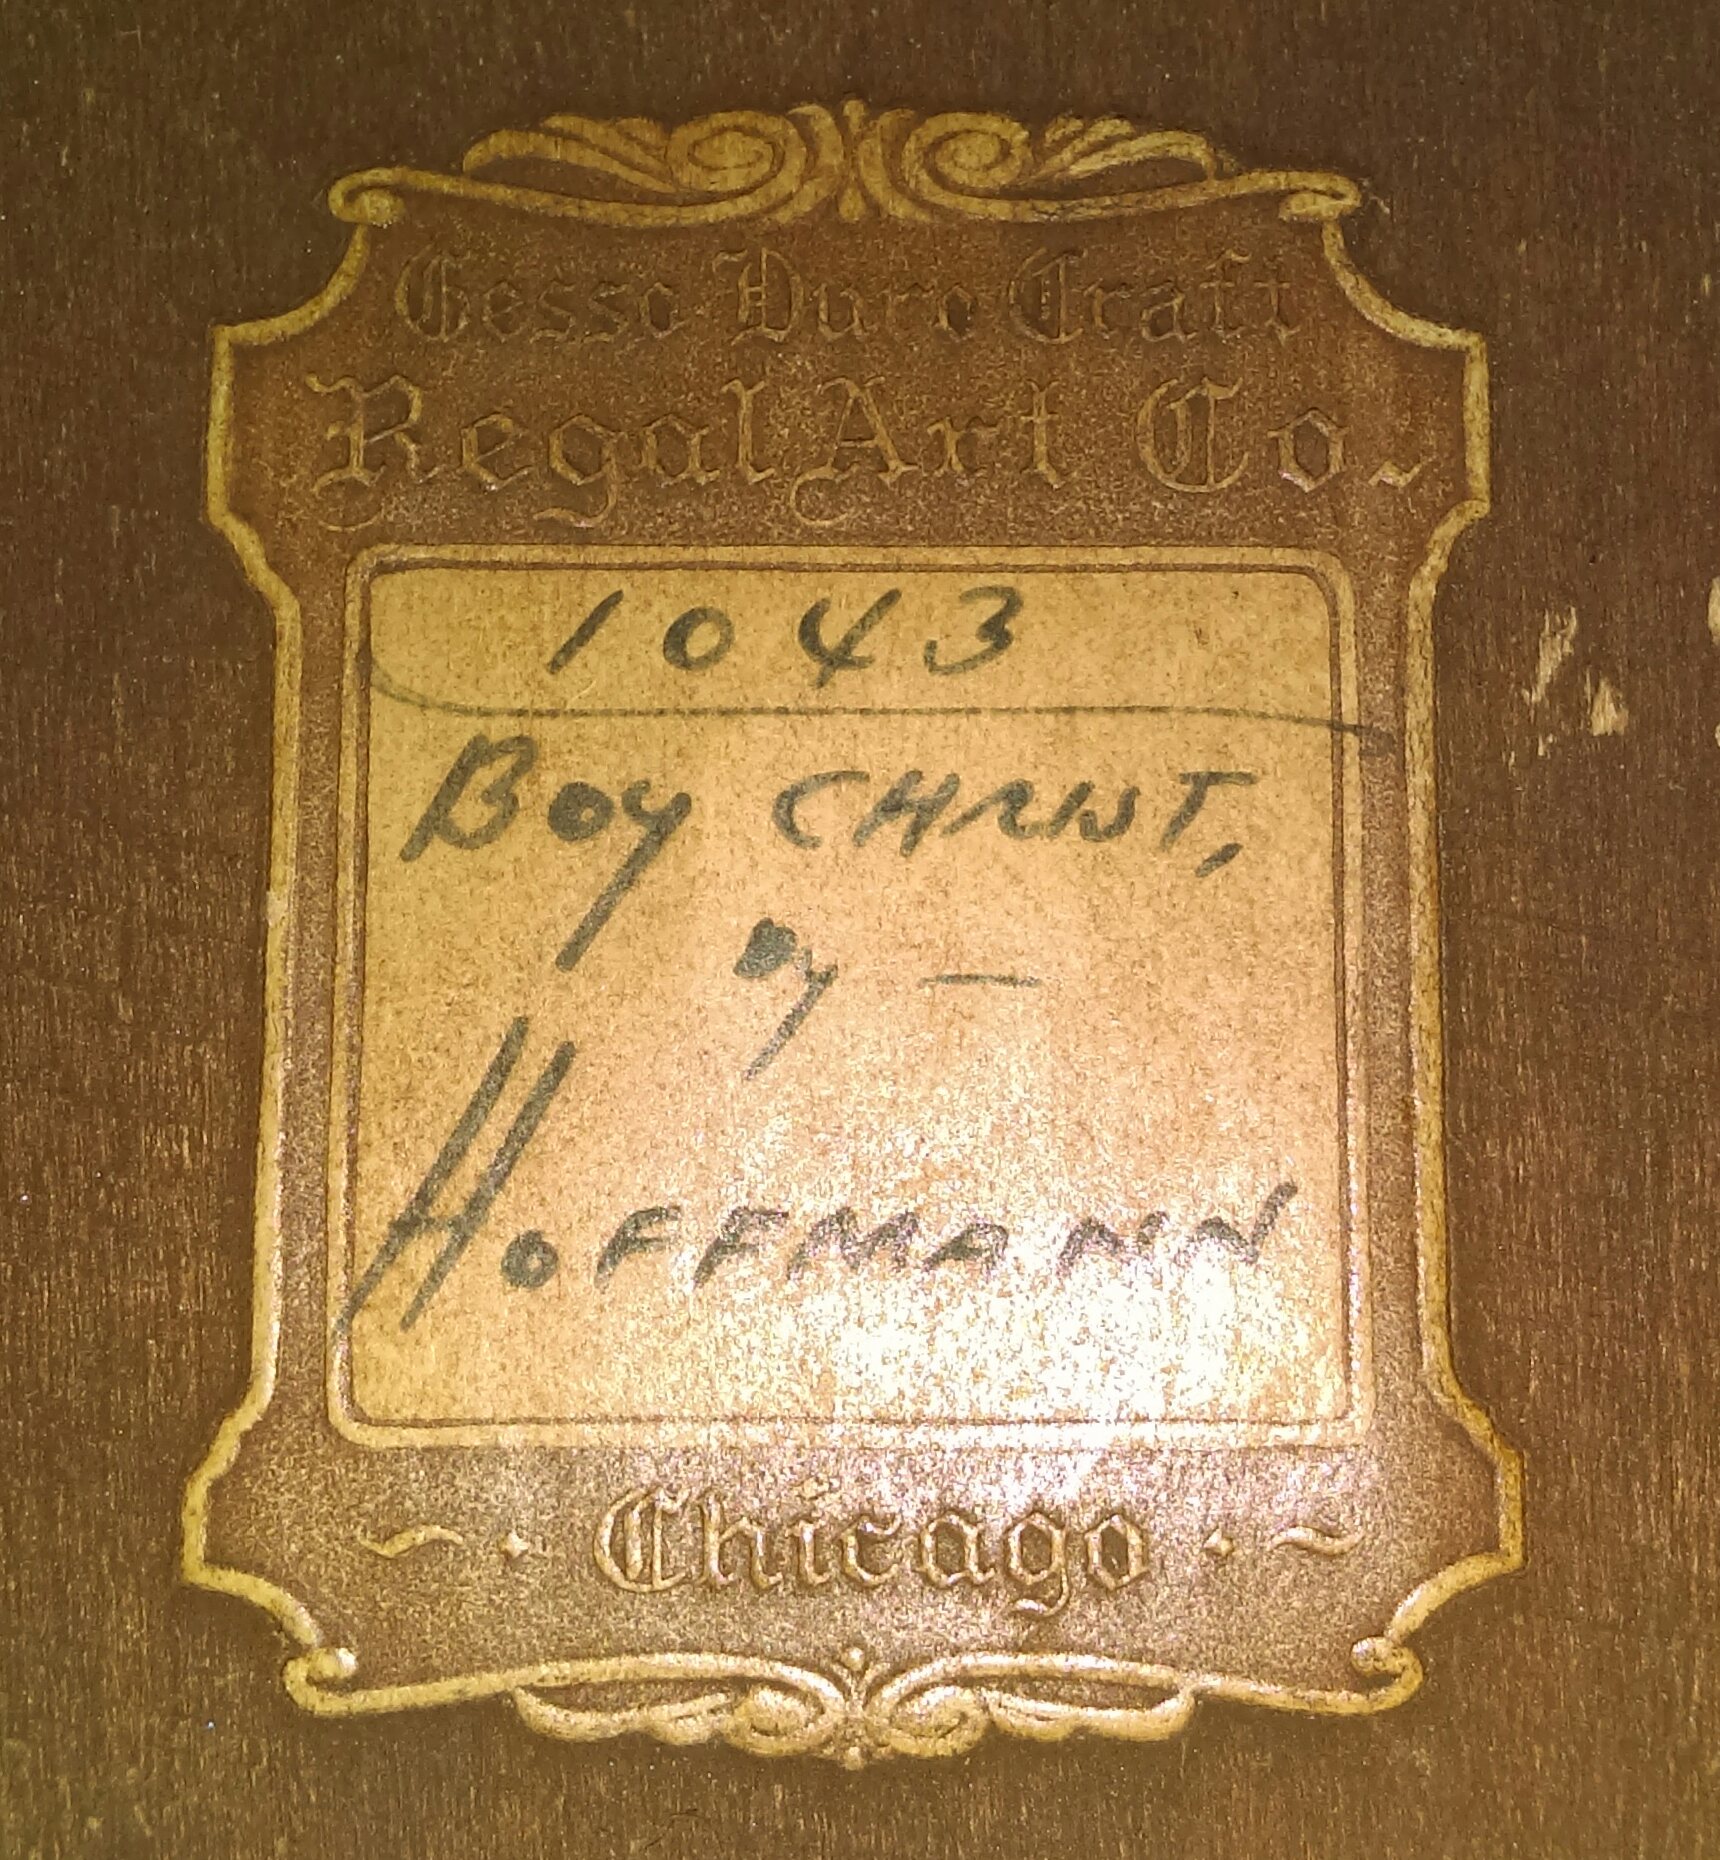 Gesso Duro Craft
Regal Art Co.
1043
Boy CHRIST,
By —
HOFFMANN
~ · Chicago · ~